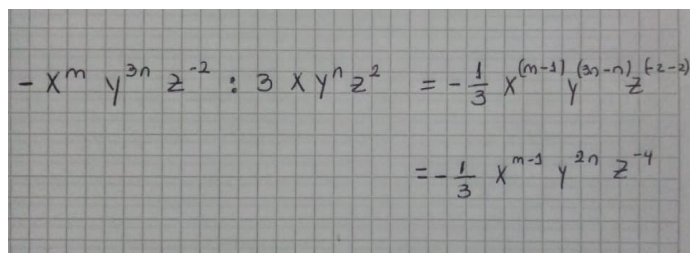 - x^m y^{3n} z^{-2} : 3 x y^n z^2 = - \frac{1}{3} x^{(m-1)} y^{(3n-n)} z^{(-2-2)}
= - \frac{1}{3} x^{m-1} y^{2n} z^{-4}